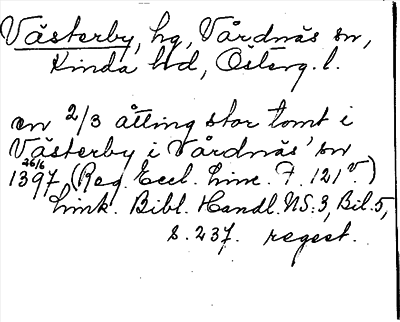 Västerby, hg, Vårdnäs sn,
Kinda hd, Österg. l.
en 2/3 åtting stor tomt i
Västerby i Vårdnäs' sn
26/6
1397 (Reg. Eccl. Linc. F. 121 v)
Link. Bibl. Handl. NS: 3, Bil. 5,
S. 237. regest.